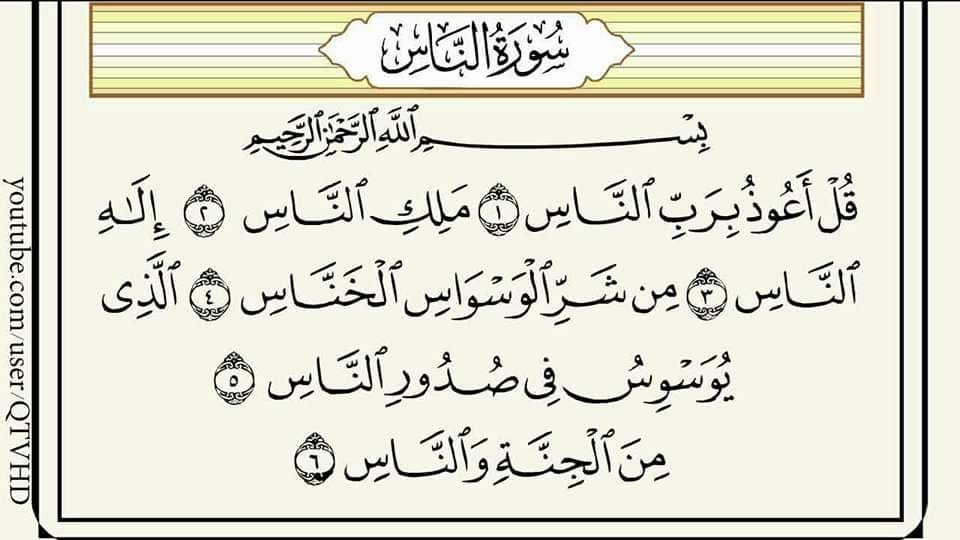 سُورَةُ النَّاسِ
بِسْمِ ٱللَّهِ ٱلرَّحْمَٰنِ ٱلرَّحِيمِ
قُلْ أَعُوذُ بِرَبِّ ٱلنَّاسِ ١ مَلِكِ ٱلنَّاسِ ٢ إِلَٰهِ
ٱلنَّاسِ ٣ مِن شَرِّ ٱلْوَسْوَاسِ ٱلْخَنَّاسِ ٤ ٱلَّذِى
يُوَسْوِسُ فِى صُدُورِ ٱلنَّاسِ ٥
مِنَ ٱلْجِنَّةِ وَٱلنَّاسِ ٦
youtube.com/user/QTVHD